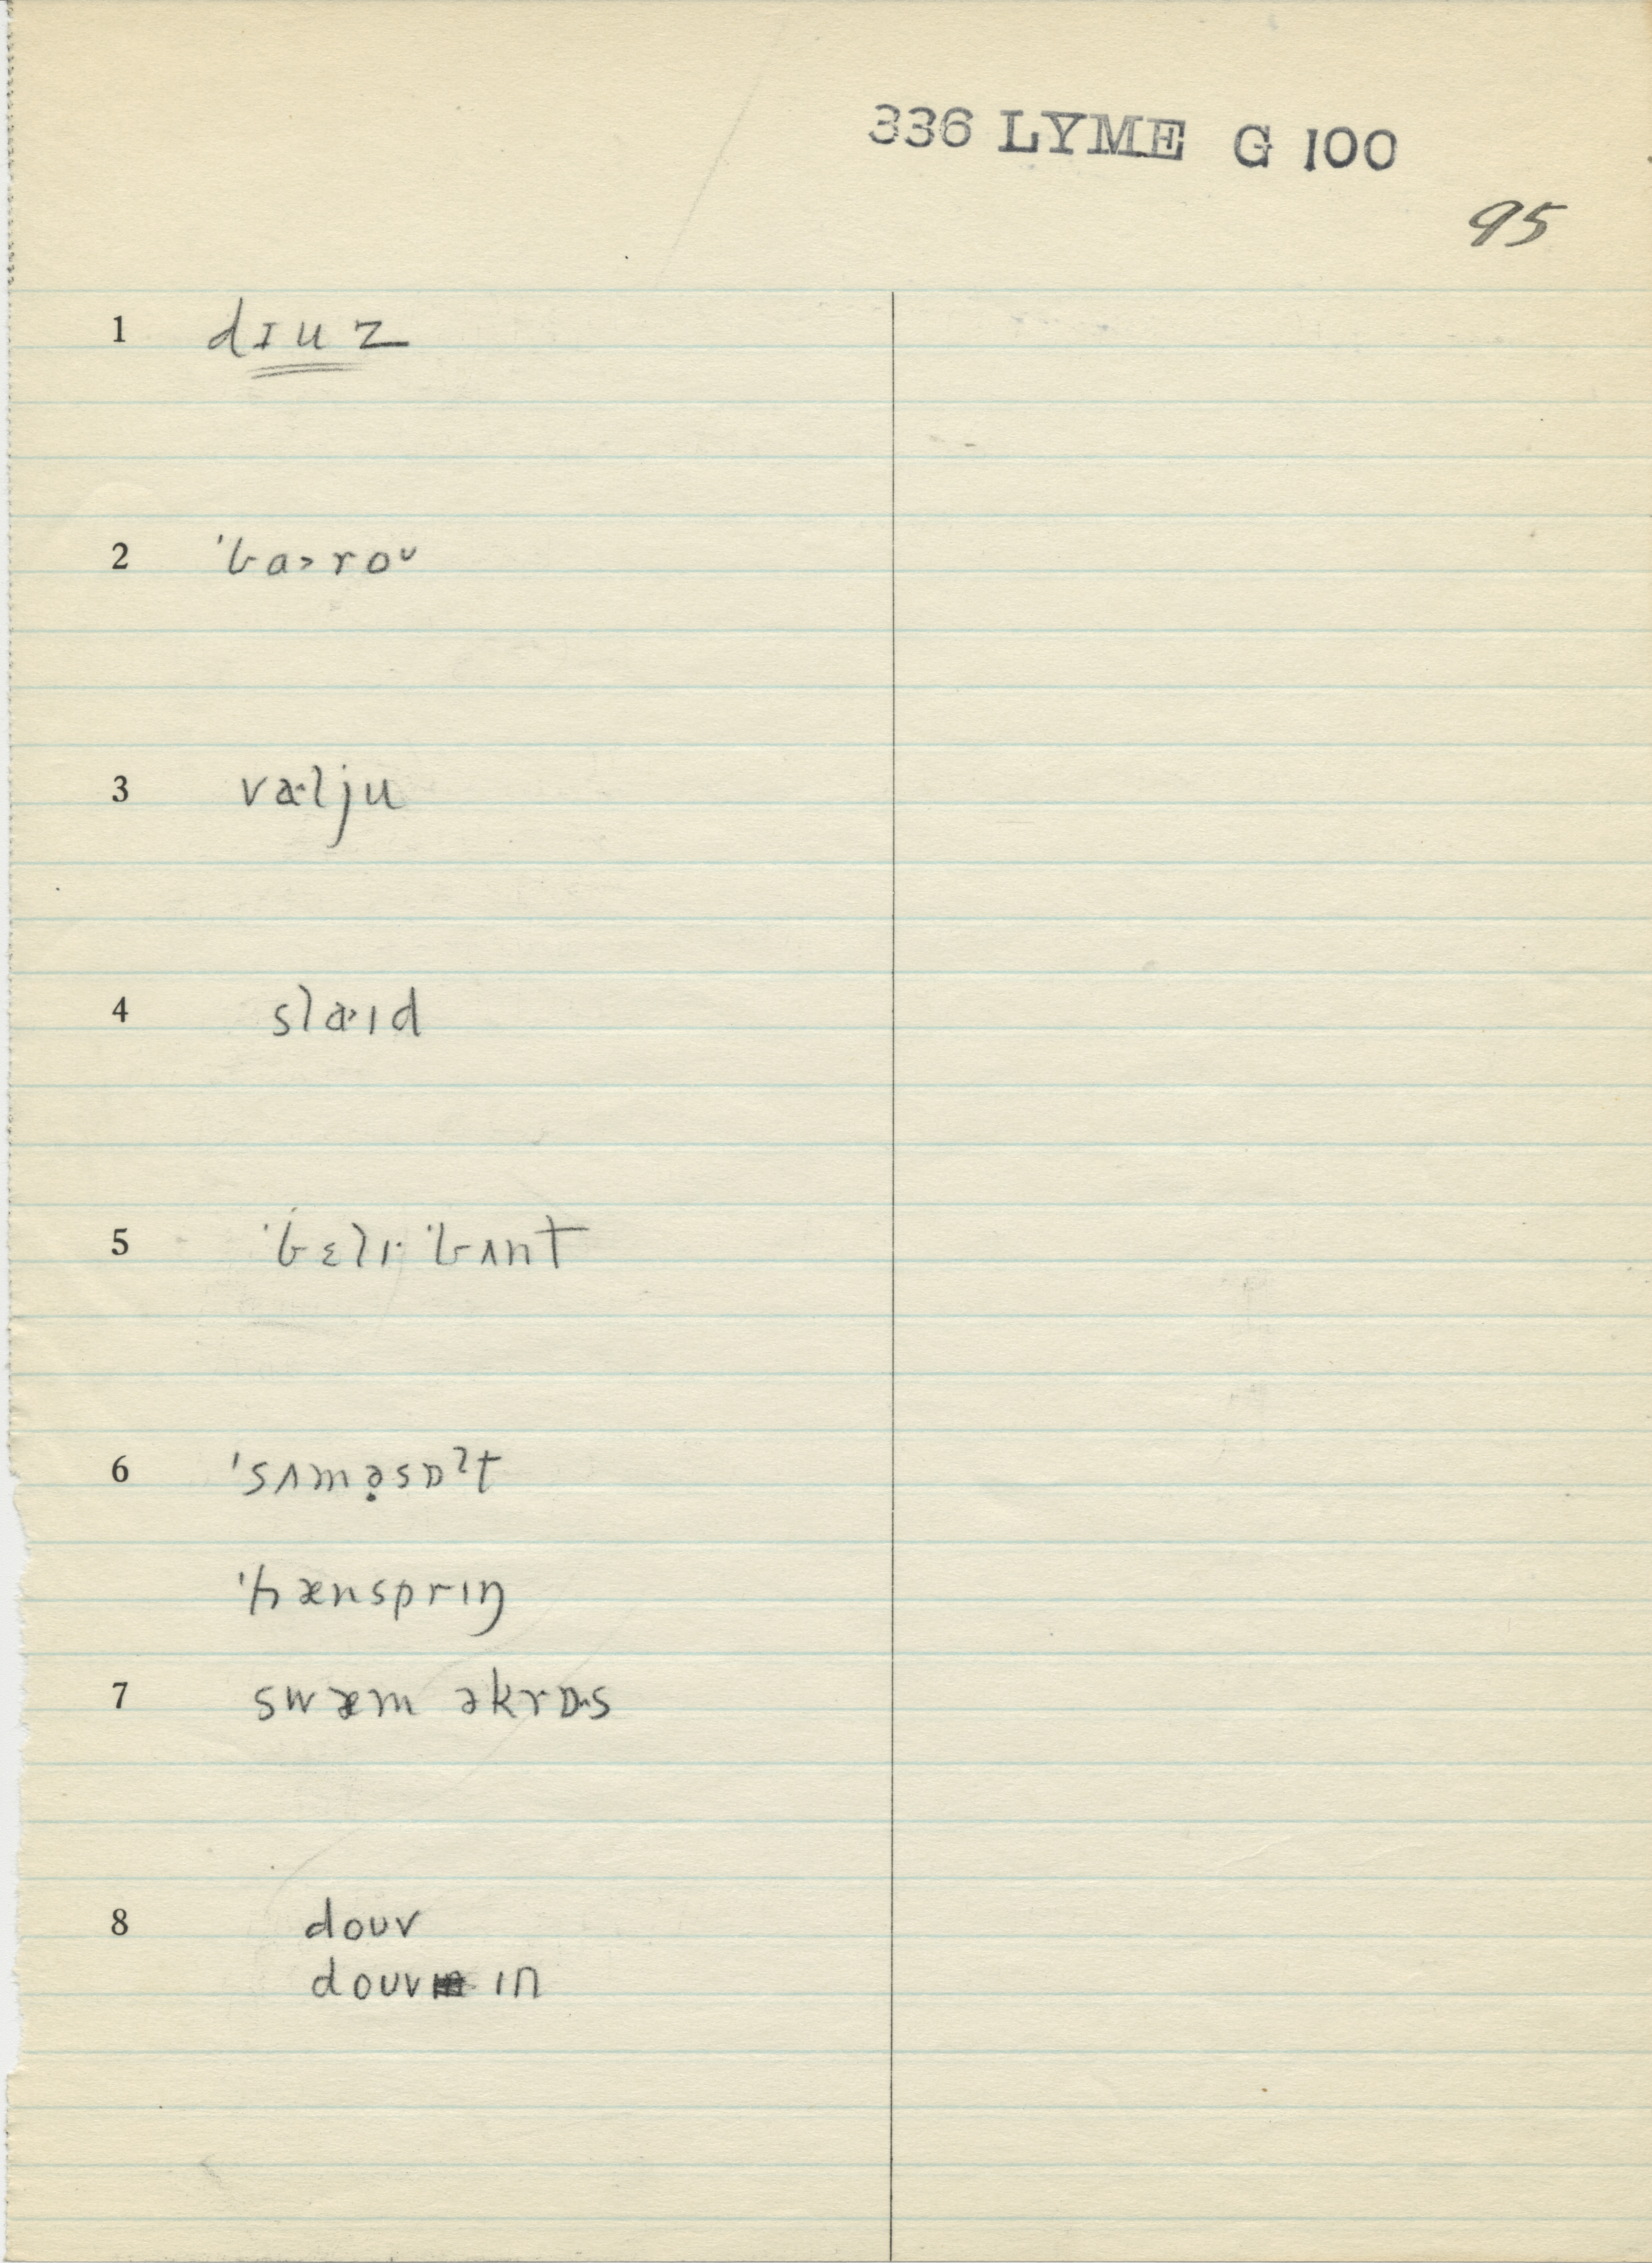 336 LYME G 100
95
1 dɪuz
2 ˈba˃roᶷ
3 vælju
4 slaˑɪd
5 ˈbɛlɪˑ ˈbʌnt
6 ˈsʌmə̣sɒˀt
ˈhænsprɪŋ
7 swæm əkrɒˑs
8 douv
douv ɪn